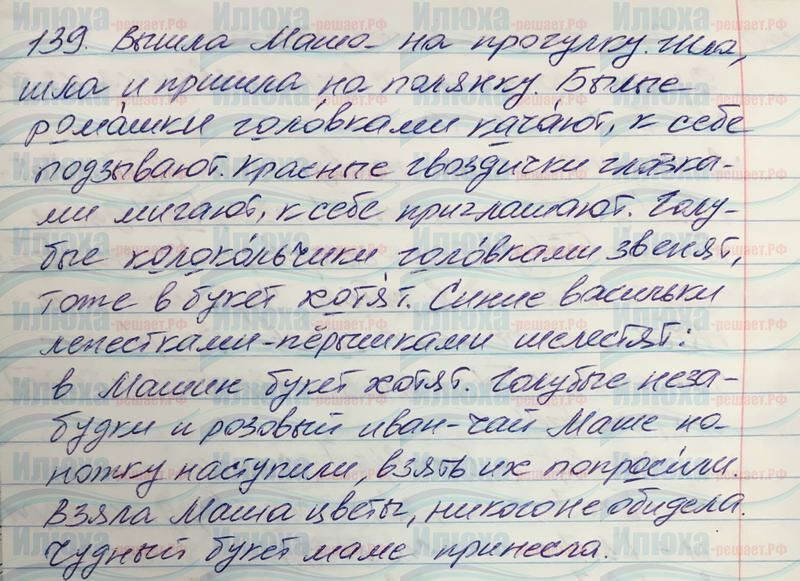 139. Вышла Маша на прогулку. Шла,
шла и пришла на полянку. Былые
рома́шки голо́вками кача́ют, к себе
подзывают. Красные гвоздички глазка-
ми мигают, к себе приглашают. Голу-
бые колоко́льчики голо́вками звенят,
тоже в букет хотя́т. Синие васильки
лепестками-пёрышками шелестят:
в Машин букет хотят. Голубые неза-
будки и розовый иван-чай Маше на
ножку наступили, взять их попроси́ли.
Взяла Маша цветы, никого не обидела.
Чудный букет маме принесла.
Илюха-решает.РФ